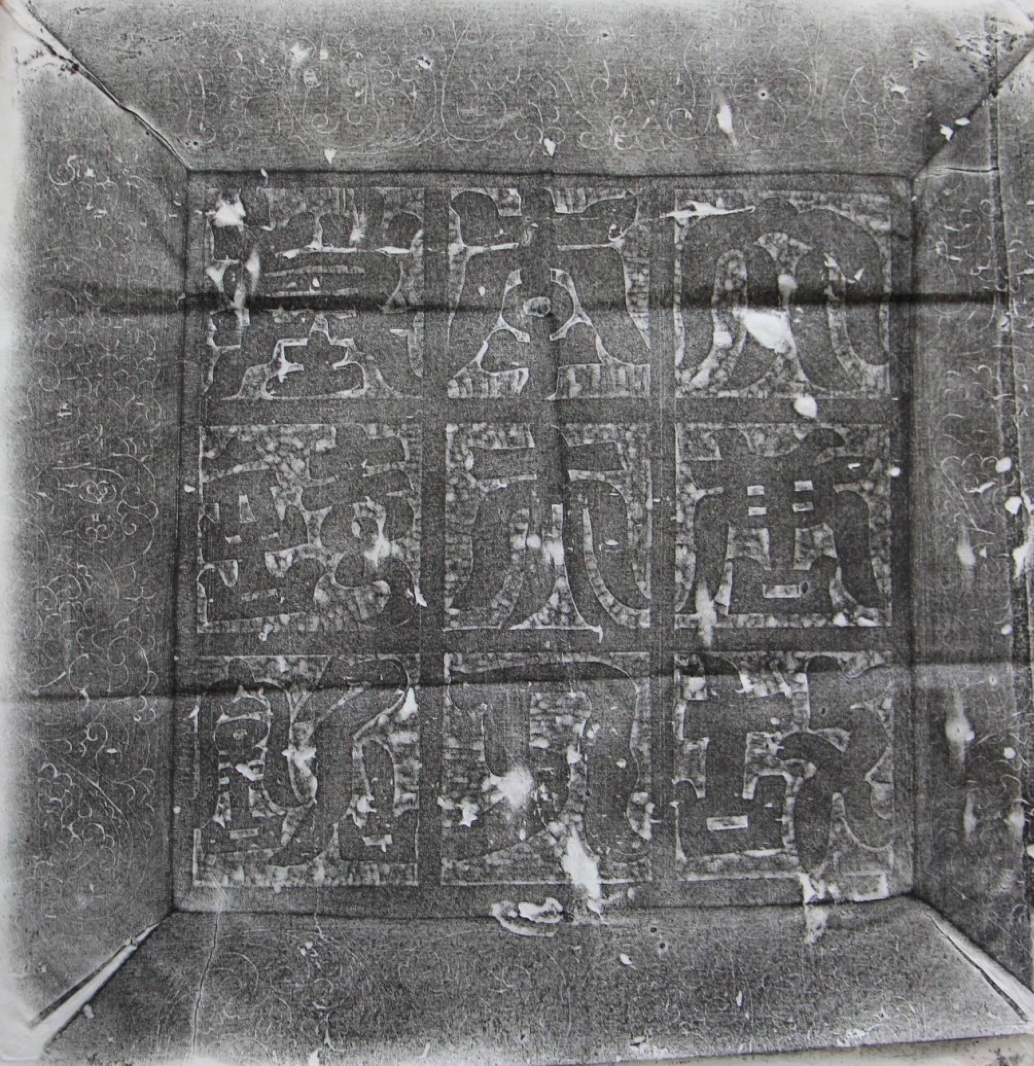 大唐故
李夫人
墓誌銘